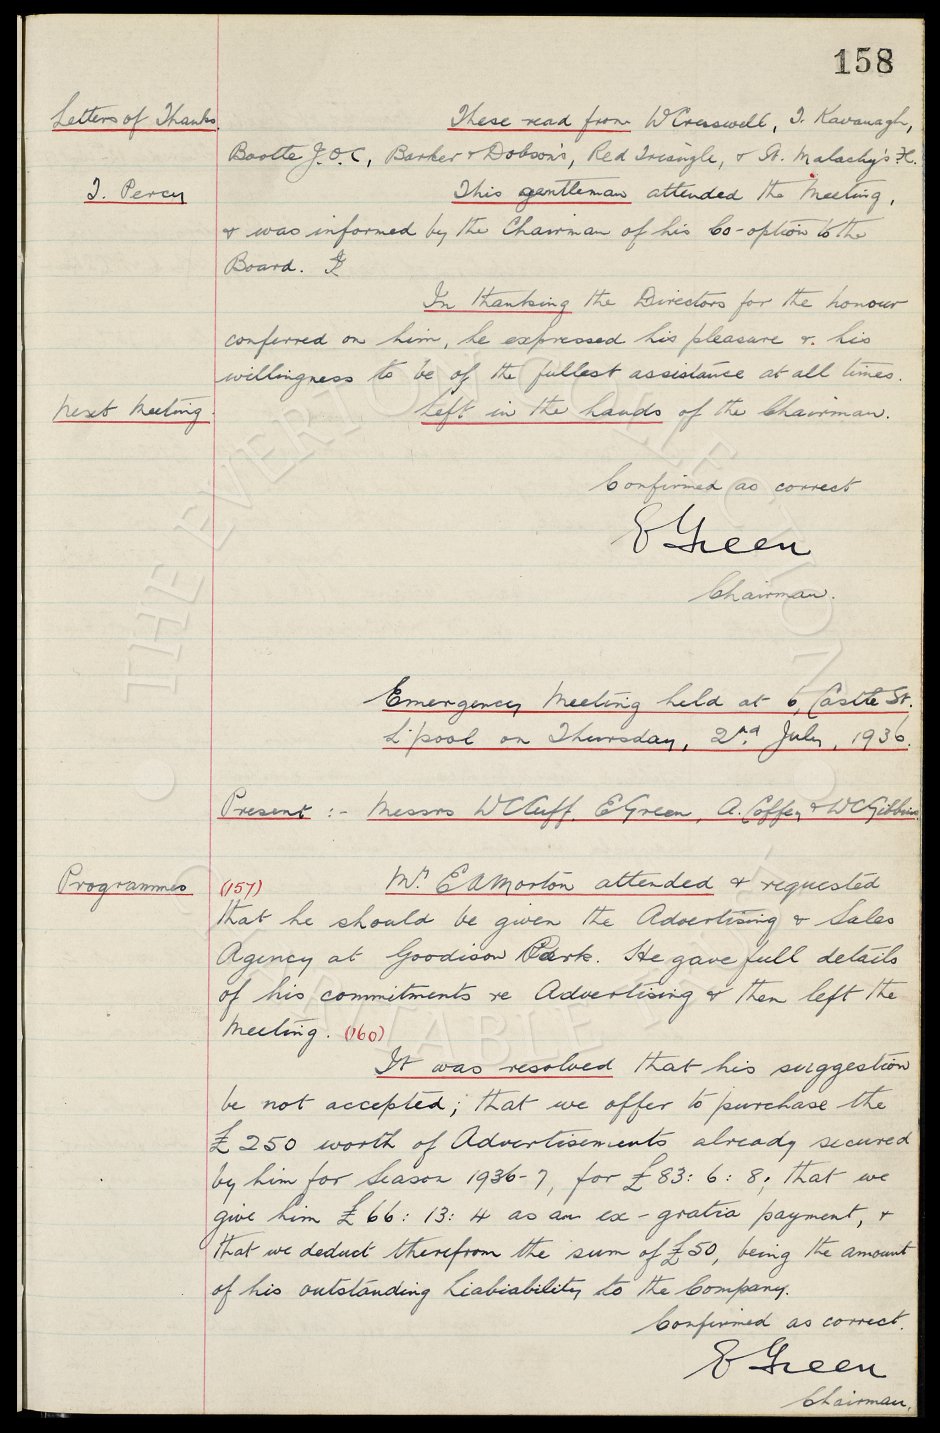 158
Letters of Thanks. These read from W Cresswell, T. Kavanagh,
Bootle J.O.C, Barker & Dobson's, Red Triangle, & St. Malachy's F.C.
T. Percy This gentleman attended the Meeting,
& was informed by the Chairman of his Co-option to the
Board.
In thanking the Directors for the honour
conferred on him, he expressed his pleasure & his
willingness to be of the fullest assistance at all times.
Next Meeting. Left in the hands of the Chairman.
Confirmed as correct
E Green
Chairman.
Emergency Meeting held at 6, Castle St.
L'pool on Thursday, 2nd July, 1936.
Present :- Messrs W C Cuff E Green, A. Coffey & W C Gibbins
Programmes (157) Mr. E A Morton attended & requested
that he should be given the Advertising & Sales
Agency at Goodison Park. He gave full details
of his commitments re Advertising & then left the
Meeting. (160)
It was resolved that his suggestion
be not accepted; that we offer to purchase the
£250 worth of Advertisements already secured
by him for Season 1936-7, for £83:6:8; that we
give him £66:13:4 as an ex-gratia payment, &
that we deduct therefrom the sum of £50, being the amount
of his outstanding Liabiability to the Company.
Confirmed as correct.
E Green
Chairman.
• THE EVERTON COLLECTION •
CHARITABLE TRUST